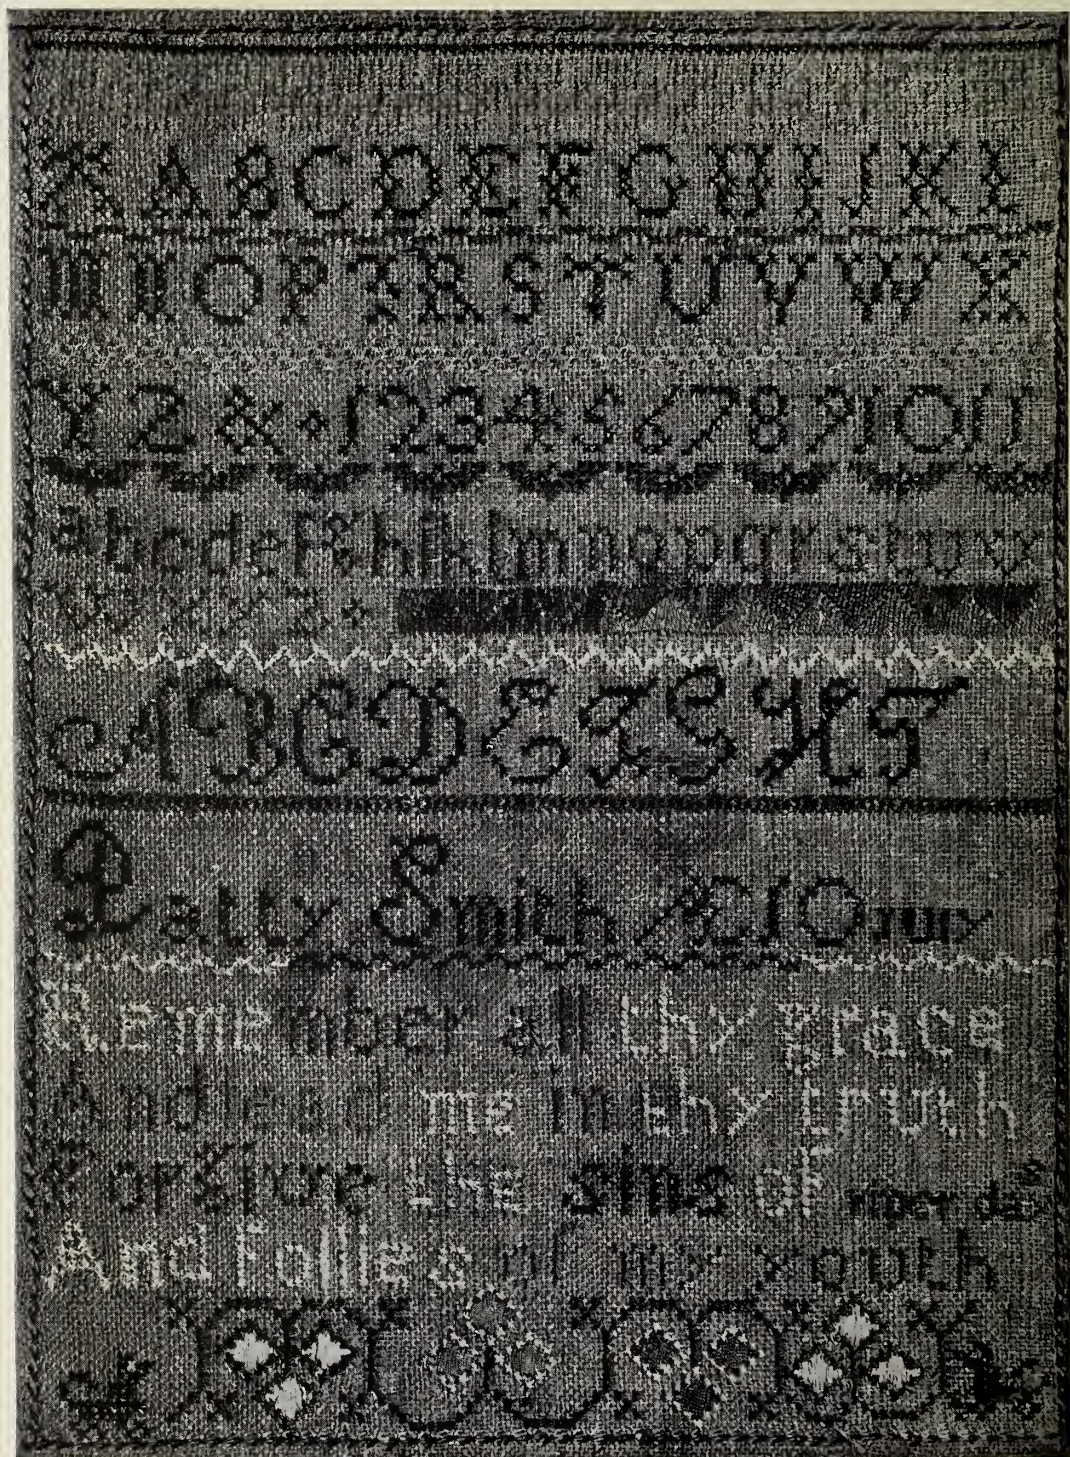 A A B C D E F G H I J K L
M N O P R S T U V W X
Y Z & 1 2 3 4 5 6 7 8 9 10 11
a b c d e f g h i k l m n o p q r s t u v
w x y z &
A B C D E F G H I
Patty Smith Æ 10
Remember all thy grace
And lead me in thy truth
Forgive the sins of riper days
And follies of my youth